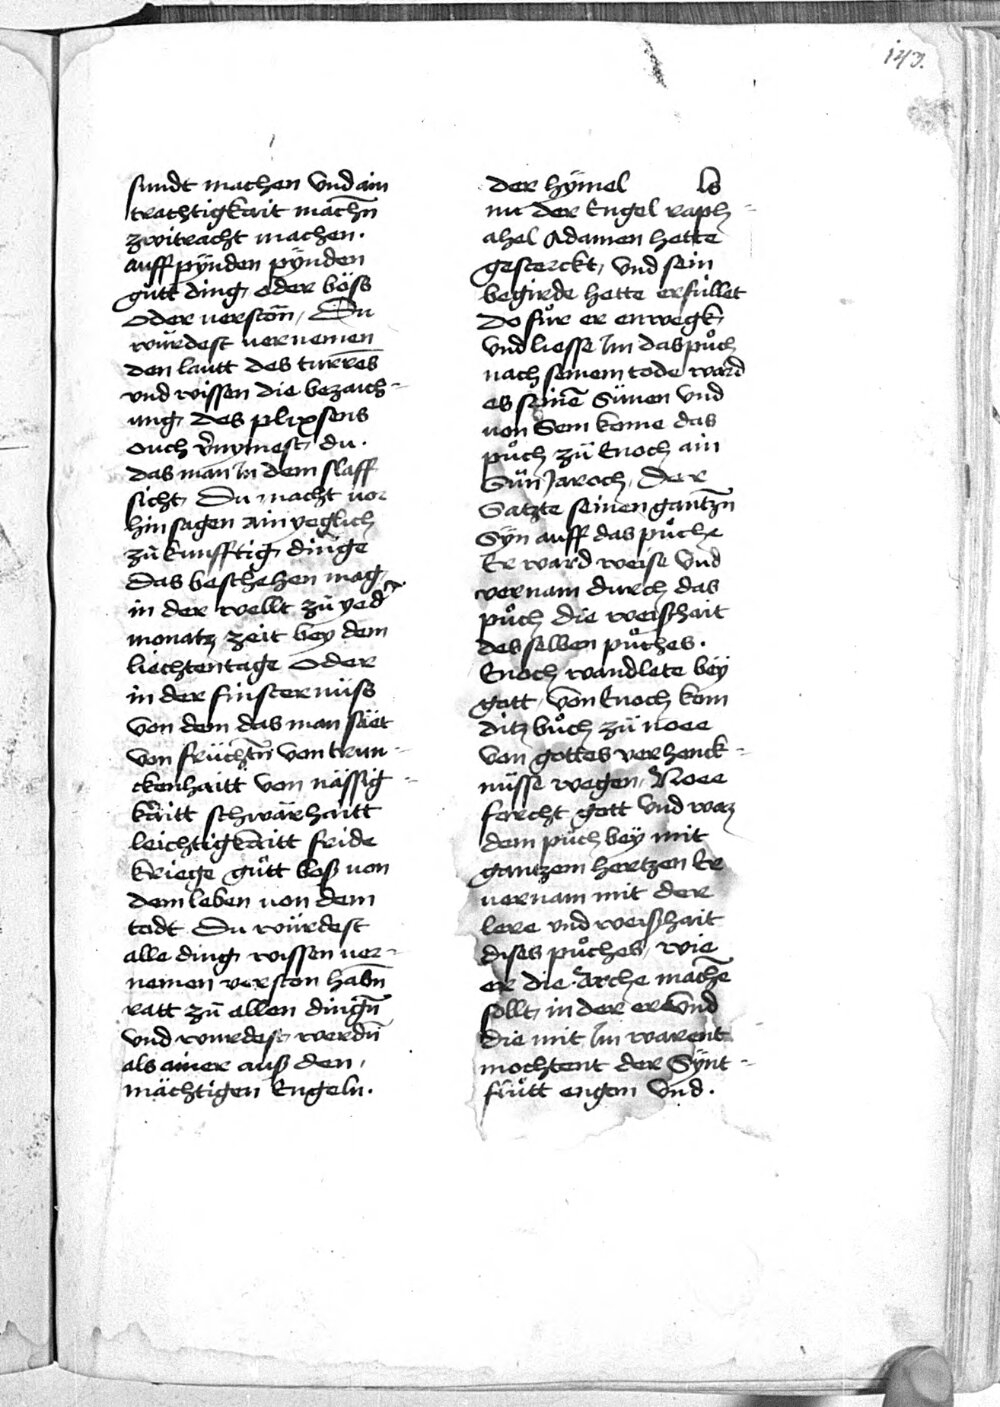 143.
sundt machen vnd ain
trachtigkait mach̄n
zwitracht machen.
auff pÿnden pÿnden
gůtt ding, oder böss
oder uerston̄, Du
würdest uernemen
den lautt des turrēs
vnd wissen die bezaich-
ung, des plixsens
ouch v̄nymest, du.
das man In dem slaff
sicht, Du macht uor
hin sagen ain yeglich
zů kunfftig, dinge
Das beschehen mag,
in der wellt zů yed
monatz, zeit bey dem
liechtentage oder
in der finsternüss
von dem das man säet
von früchtn̄ von trun-
ckenhaitt von nässig-
kaitt schwärhaitt
leichtigkaitt fride
kriege gůtt boß uon
dem leben uon dem
todt Du würdest
alle ding, wissen uer-
nemen verston habn̄
ratt zů allen dingn̄
vnd wurdest, werdn̄
als ainer auß den,
mächtigen Engeln.
der hÿmel ls
nu der Engel raph-
ahel Adamen hette
gesterckt, vnd sein
begirde hette erfüllet
Do fůr er enwegk,
vnd liesse Im das půch
nach seinem tode ward
es seinē Sünen vnd
uon Sem kome das
půch zů Enoch ain
Sün Jaroch, Der
Satzte seinen gantzn̄
Sÿn auff das půche
Er ward weise vnd
vernam durch das
půch die weißhait
des selben půches.
Enoch wandlete bëÿ
gott, von Enoch kom
ditz bůch zů noee
von gottes verhenck-
nüsse wegen, Noee
forcht gott vnd waz
dem půch beÿ mit
gantzem hertzen Er
uernam mit der
lere vnd weißhait
dises půches, wie
er die Arche machē
sollt, in der er vnd
die mit Im warent
mochtent der Sÿnt-
flůtt engan vnd.